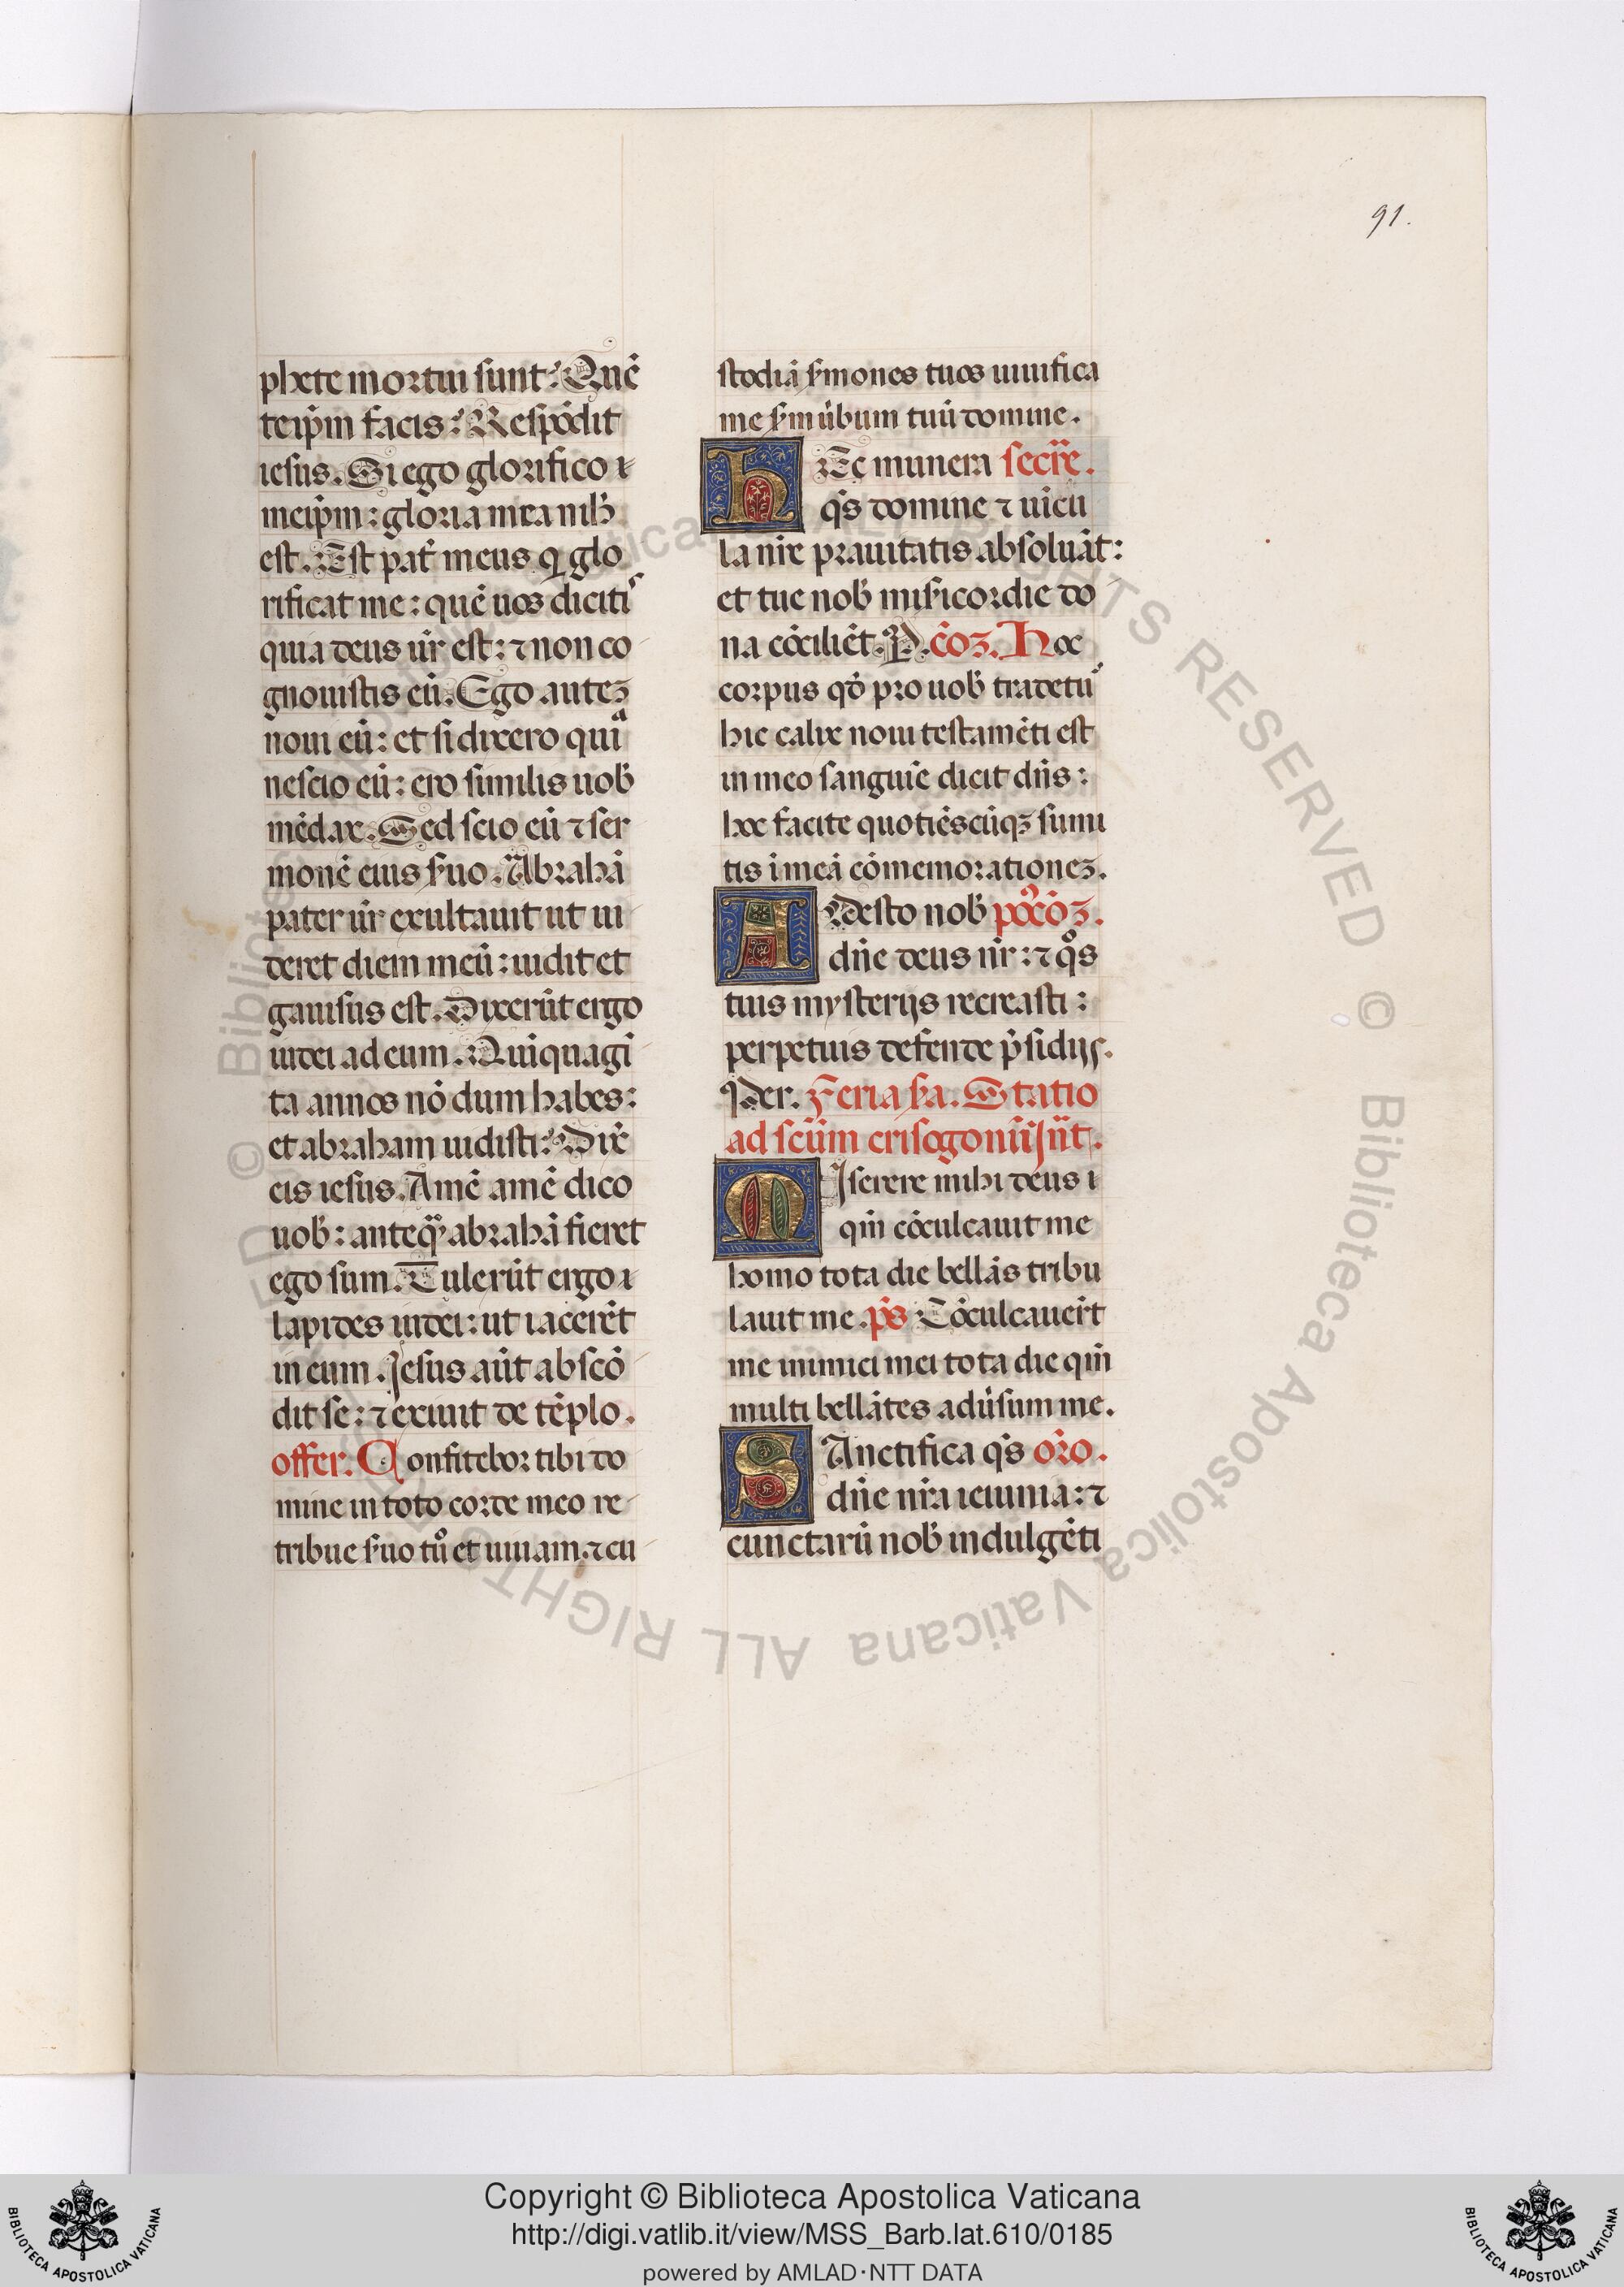 91.
phete mortui sunt? Quē
teip̄m facis? Respōdit
iesus. Si ego glorifico
meip̄m: gloria mea nih̄
est. Est pat̄ meus q̄ glo
rificat me: quē uos diciti
quia deus ur̄ est: ⁊ non co
gnouistis eū. Ego autez
noui eū: et si dixero quia
nescio eū: ero similis uob̄
mēdax. Sed scio eū ⁊ ser
monē eius s̄uo. Abrahā
pater ur̄ exultauit ut ui
deret diem meū: uidit et
gauisus est. Dixerūt ergo
iudei ad eum. Quīquagī
ta annos nōdum habes:
et abraham uidisti? Dix̄
eis iesus. Amē amē dico
uob̄: anteq̄ abrahā fieret
ego sum. Tulerūt ergo
lapides iudei: ut iacerēt
in eum. Jesus aūt abscō
dit se: ⁊ exiuit de tēplo.
offer. Confitebor tibi do
mine in toto corde meo re
tribue s̄uo tuo et uiuam: ⁊ cu
stodiā s̄mones tuos uiuifica
me s̄m ūbum tuū domine.
HEc munera secr̄e.
q̄s domine ⁊ uīcu
la nr̄e prauitatis absoluāt:
et tue nob̄ mis̄icordie do
na cōciliēt. P. cōz. Hoc
corpus qd̄ pro uob̄ tradetur
hic calix noui testamēti est
in meo sanguīe dicit dn̄s:
hec facite quotiēscūqz sumi
tis ī meā cōmemorationez.
ADesto nob̄ pꝯcōz.
dn̄e deus nr̄: ⁊ q̊s
tuis mysterijs recreasti:
perpetuis defende p̄sidijs.
q̄ der. Feria s̄a. Statio
ad sc̄um crisogonū Jn̄t.
MIserere mihi deus
qm̄ cōculcauit me
homo tota die bellās tribu
lauit me. ps̄ Cōculcauer̄t
me inimici mei tota die qm̄
multi bellātes adūsum me.
SAnctifica q̄s or̄o.
dn̄e nr̄a ieiunia: ⁊
cunctarū nob̄ indulgēti
Copyright © Biblioteca Apostolica Vaticana
http://digi.vatlib.it/view/MSS_Barb.lat.610/0185
powered by AMLAD·NTT DATA
BIBLIOTECA APOSTOLICA VATICANA
BIBLIOTECA APOSTOLICA VATICANA
© Biblioteca Apostolica Vaticana ALL RIGHTS RESERVED
© Biblioteca Apostolica Vaticana ALL RIGHTS RESERVED